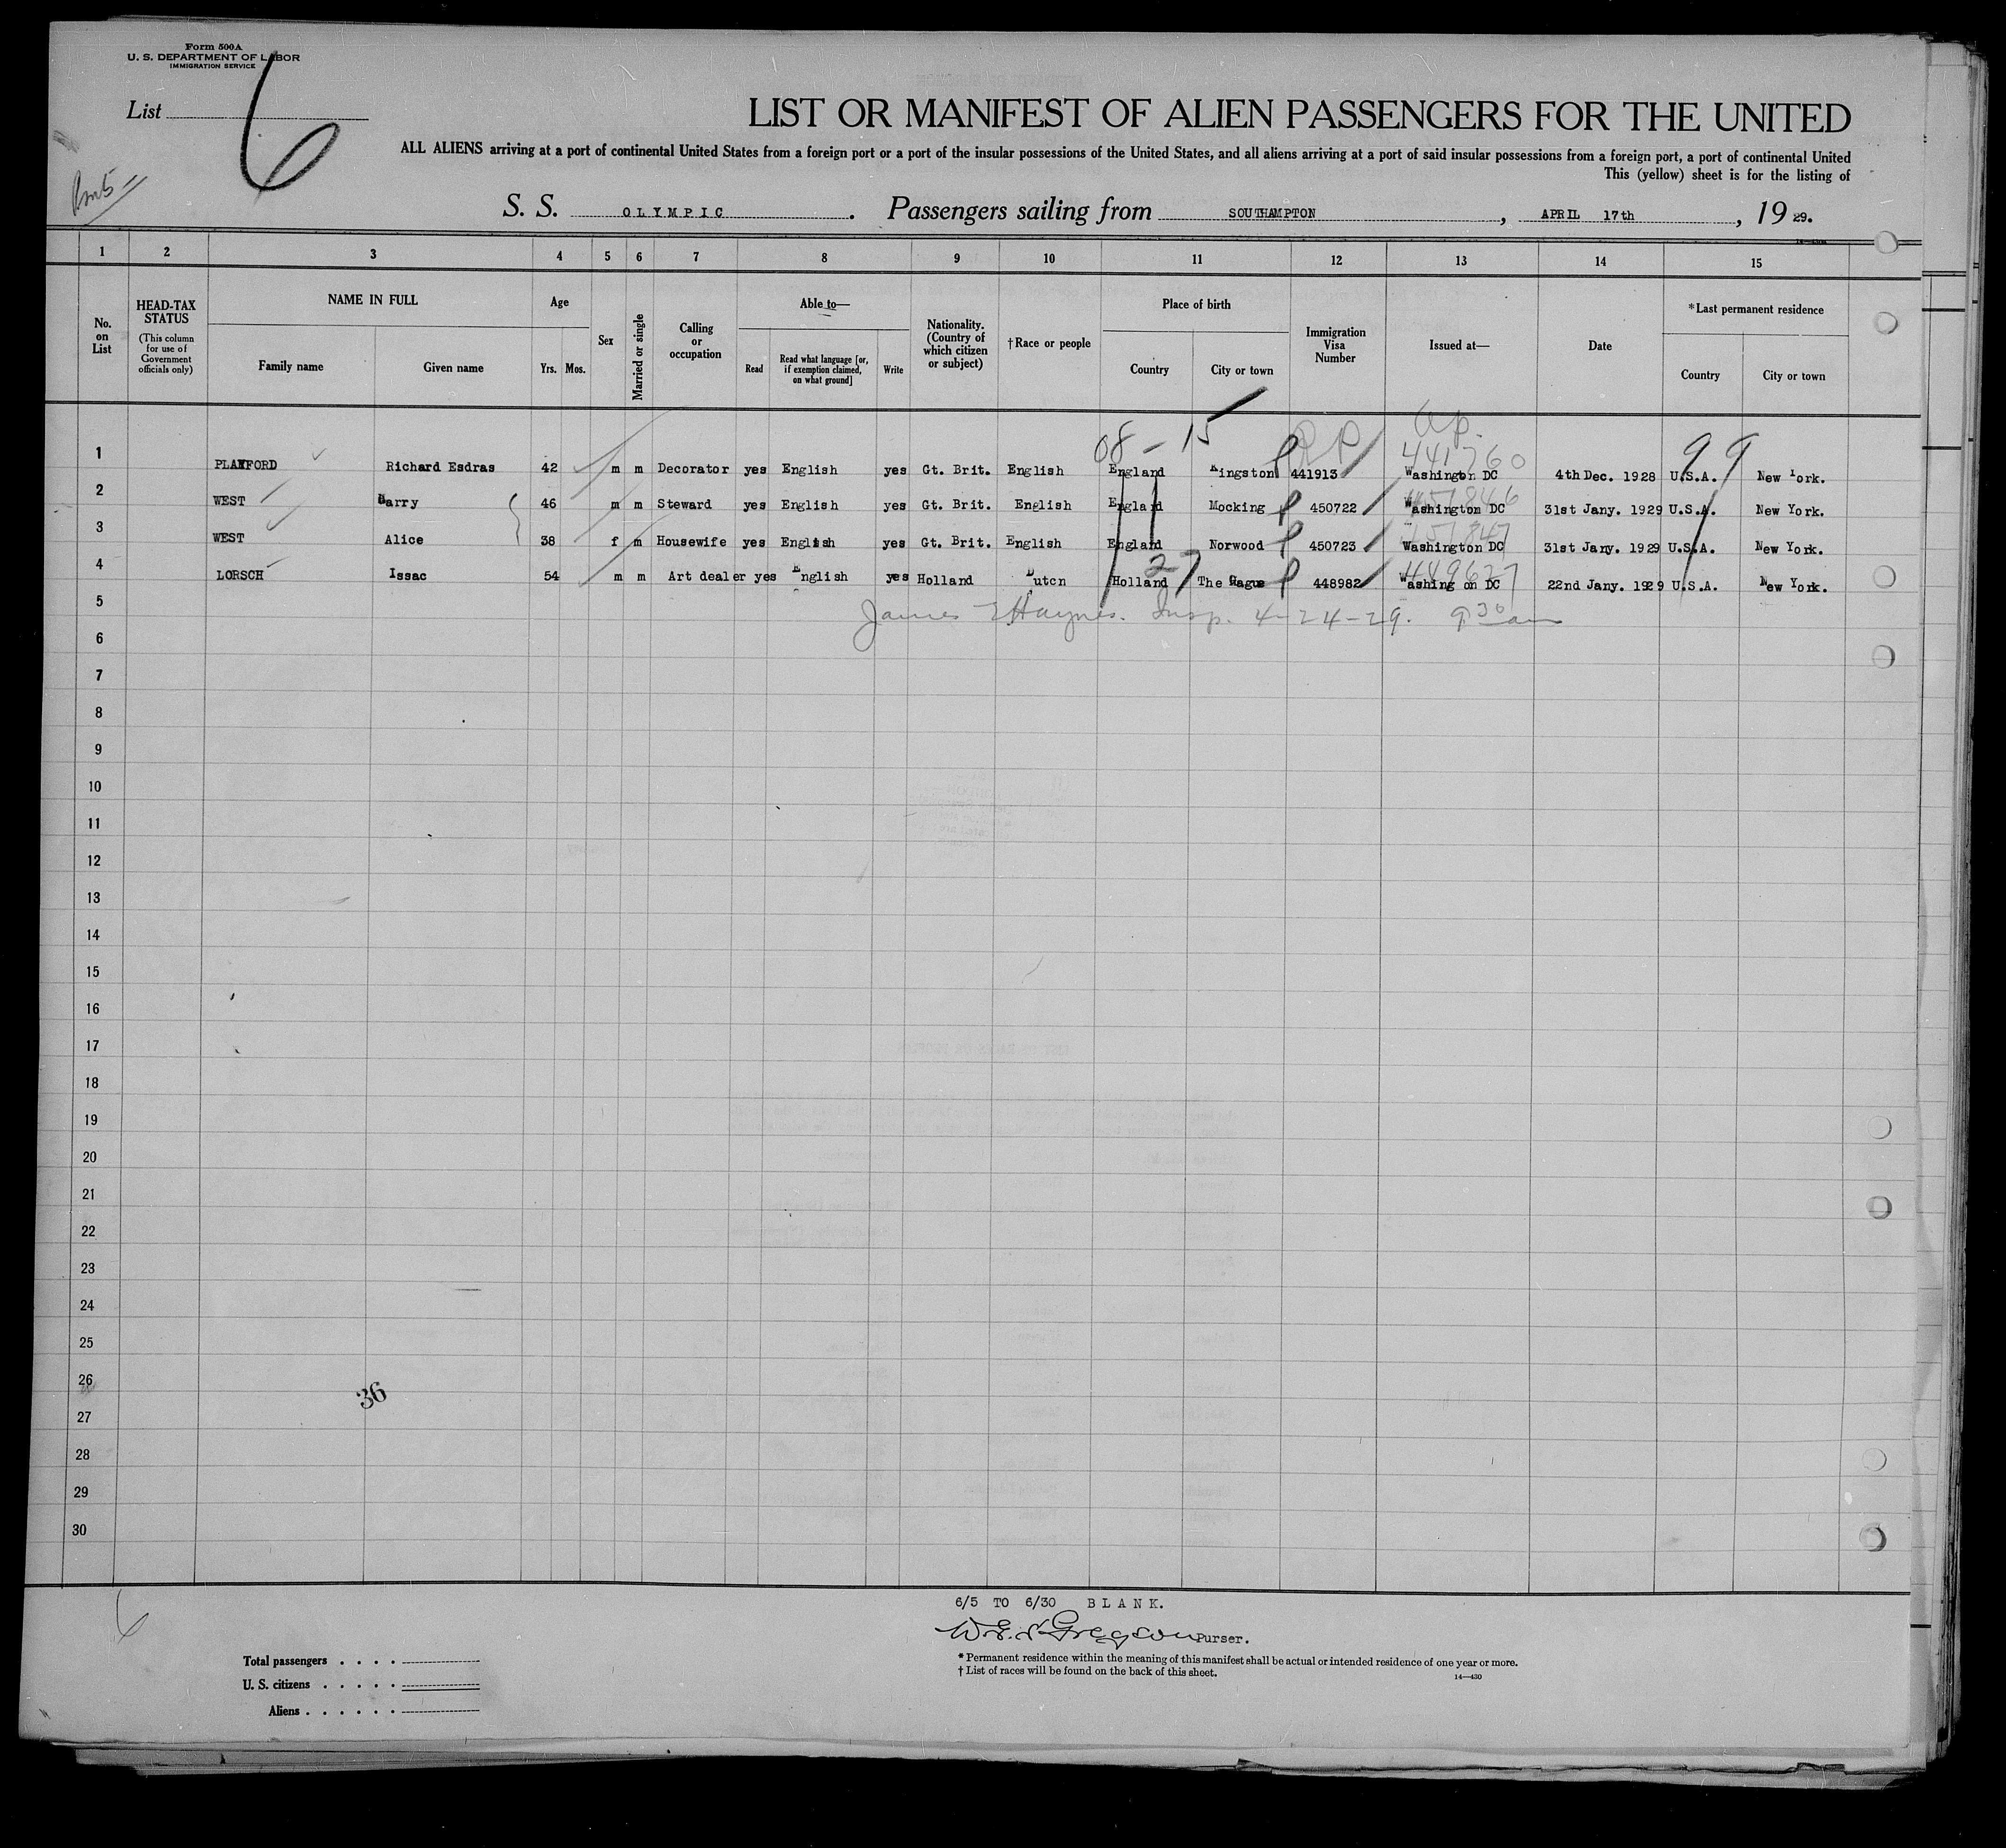 Form 500A
U. S. DEPARTMENT OF LABOR
IMMIGRATION SERVICE
List 6
LIST OR MANIFEST OF ALIEN PASSENGERS FOR THE UNITED
ALL ALIENS arriving at a port of continental United States from a foreign port or a port of the insular possessions of the United States, and all aliens arriving at a port of said insular possessions from a foreign port, a port of continental United
This (yellow) sheet is for the listing of
S. S. OLYMPIC. Passengers sailing from SOUTHAMPTON, APRIL 17th, 19 29.
1 2 3 4 5 6 7 8 9 10 11 12 13 14 15
No. on List
HEAD-TAX STATUS
(This column for use of Government officials only)
NAME IN FULL
Family name Given name
Age
Yrs. Mos.
Sex
Married or single
Calling or occupation
Able to—
Read Read what language [or, if exemption claimed, on what ground] Write
Nationality. (Country of which citizen or subject)
†Race or people
Place of birth
Country City or town
Immigration Visa Number
Issued at—
Date
*Last permanent residence
Country City or town
08 - 15
99
441760
1 Richard Esdras 42 m m Decorator yes English yes Gt. Brit. English England Kingston 441913 Washington DC 4th Dec. 1928 U.S.A. New York.
451846
2 WEST Harry 46 m m Steward yes English yes Gt. Brit. English England Mocking 450722 Washington DC 31st Jany. 1929 U.S.A. New York.
451847
3 WEST Alice 38 f m Housewife yes English yes Gt. Brit. English England Norwood 450723 Washington DC 31st Jany. 1929 U.S.A. New York.
27
449627
4 LORSCH Issac 54 m m Art dealer yes English yes Holland Dutcn Holland The Hague 448982 Washing on DC 22nd Jany. 1929 U.S.A. New York.
5
James Haynes. Insp. 4-24-29. 9 30 am
6
7
8
9
10
11
12
13
14
15
16
17
18
19
20
21
22
23
24
25
26
36
27
28
29
30
6
6/5 TO 6/30 BLANK.
Gregson Purser.
* Permanent residence within the meaning of this manifest shall be actual or intended residence of one year or more.
† List of races will be found on the back of this sheet.
14—430
Total passengers . . . .
U. S. citizens . . . . .
Aliens . . . . . .